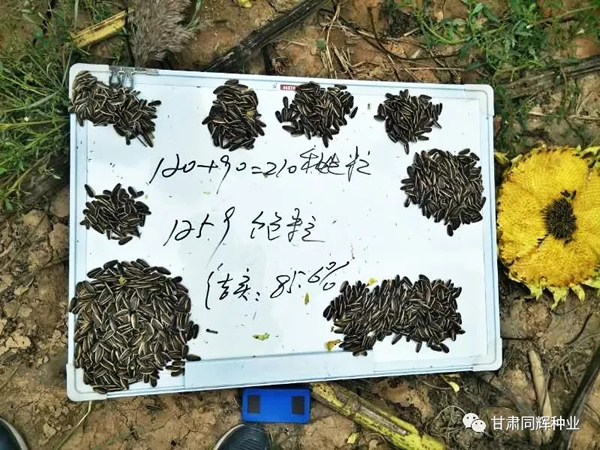 120+90=210 秕粒
1259 饱粒
结实：85.6%
甘肃同辉种业